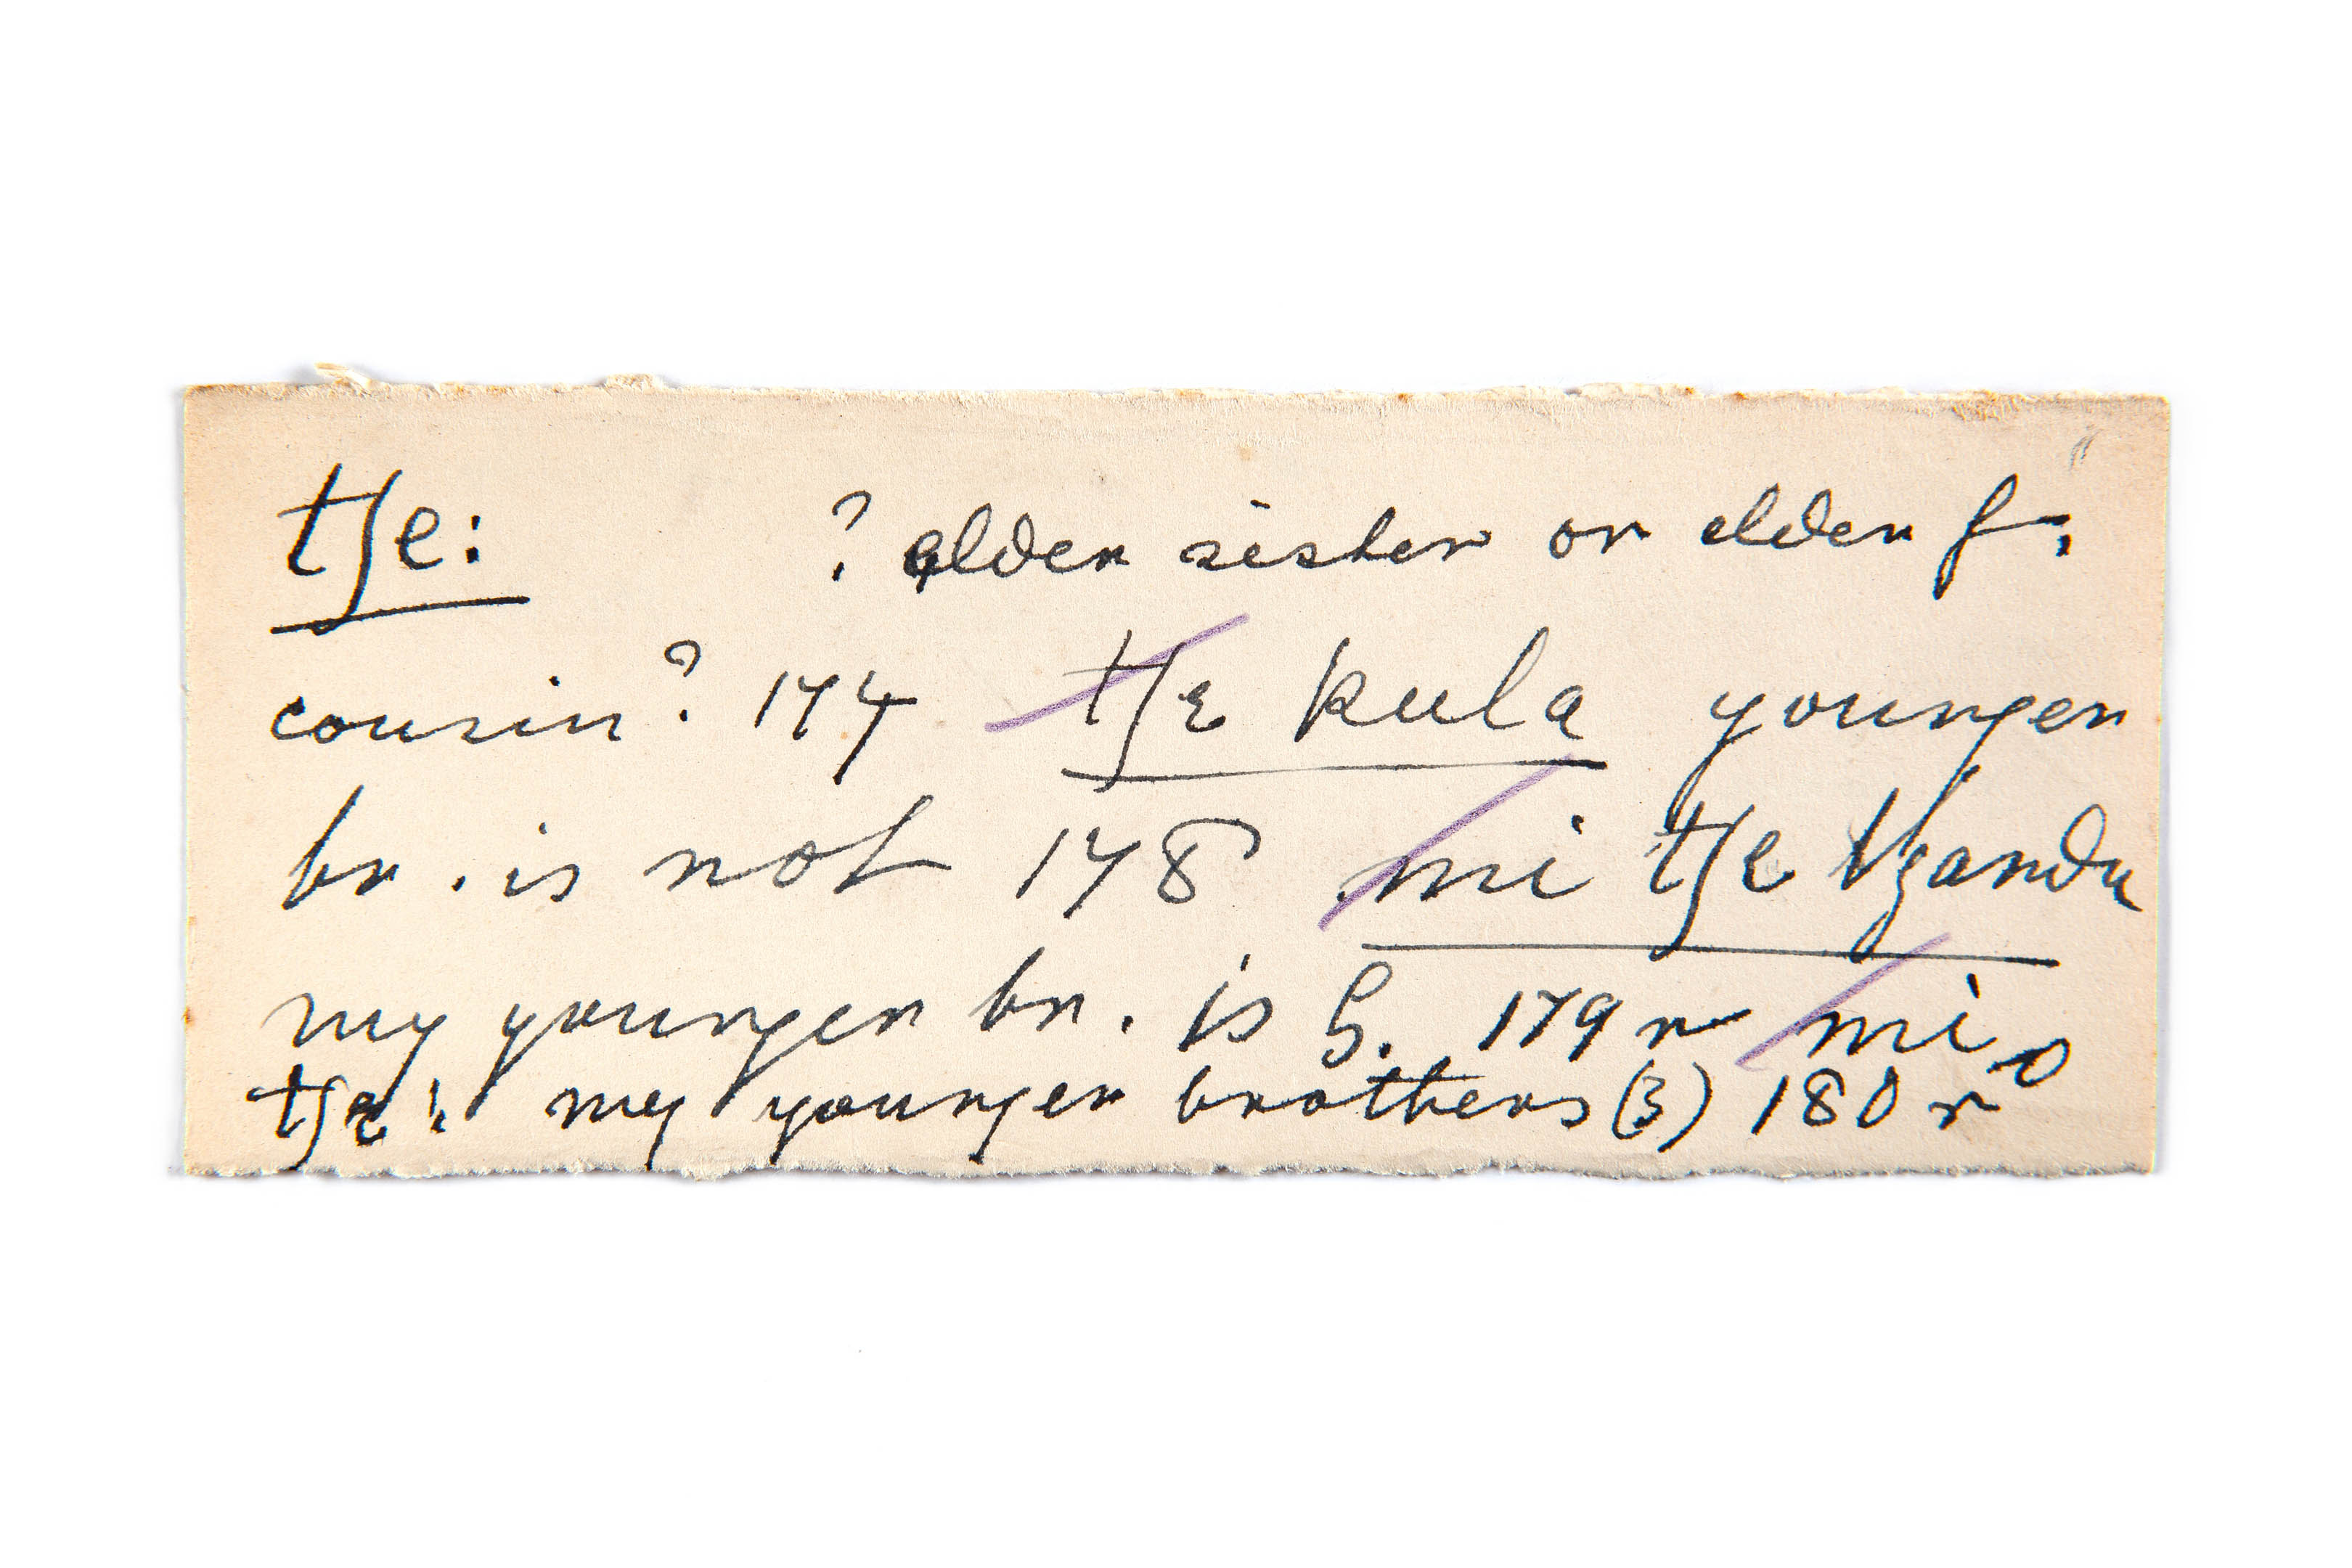 tʃe: ? elder sister or elder f.
cousin? 174 tʃɛ kula younger
br. is not 178 mi tʃe
my younger br. is G. 179 r mi
tʃɛ: my younger brothers (3) 180 r